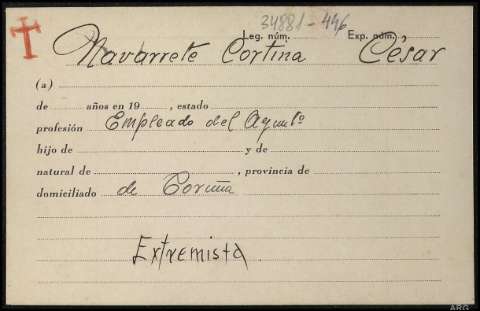 34881-496
Leg. núm. Exp. núm.
Navarrete Cortina César
(a)
de años en 19 , estado
profesión Empleado del Ayuntº
hijo de y de
natural de , provincia de
domiciliado de Coruña
Extremista
ARG